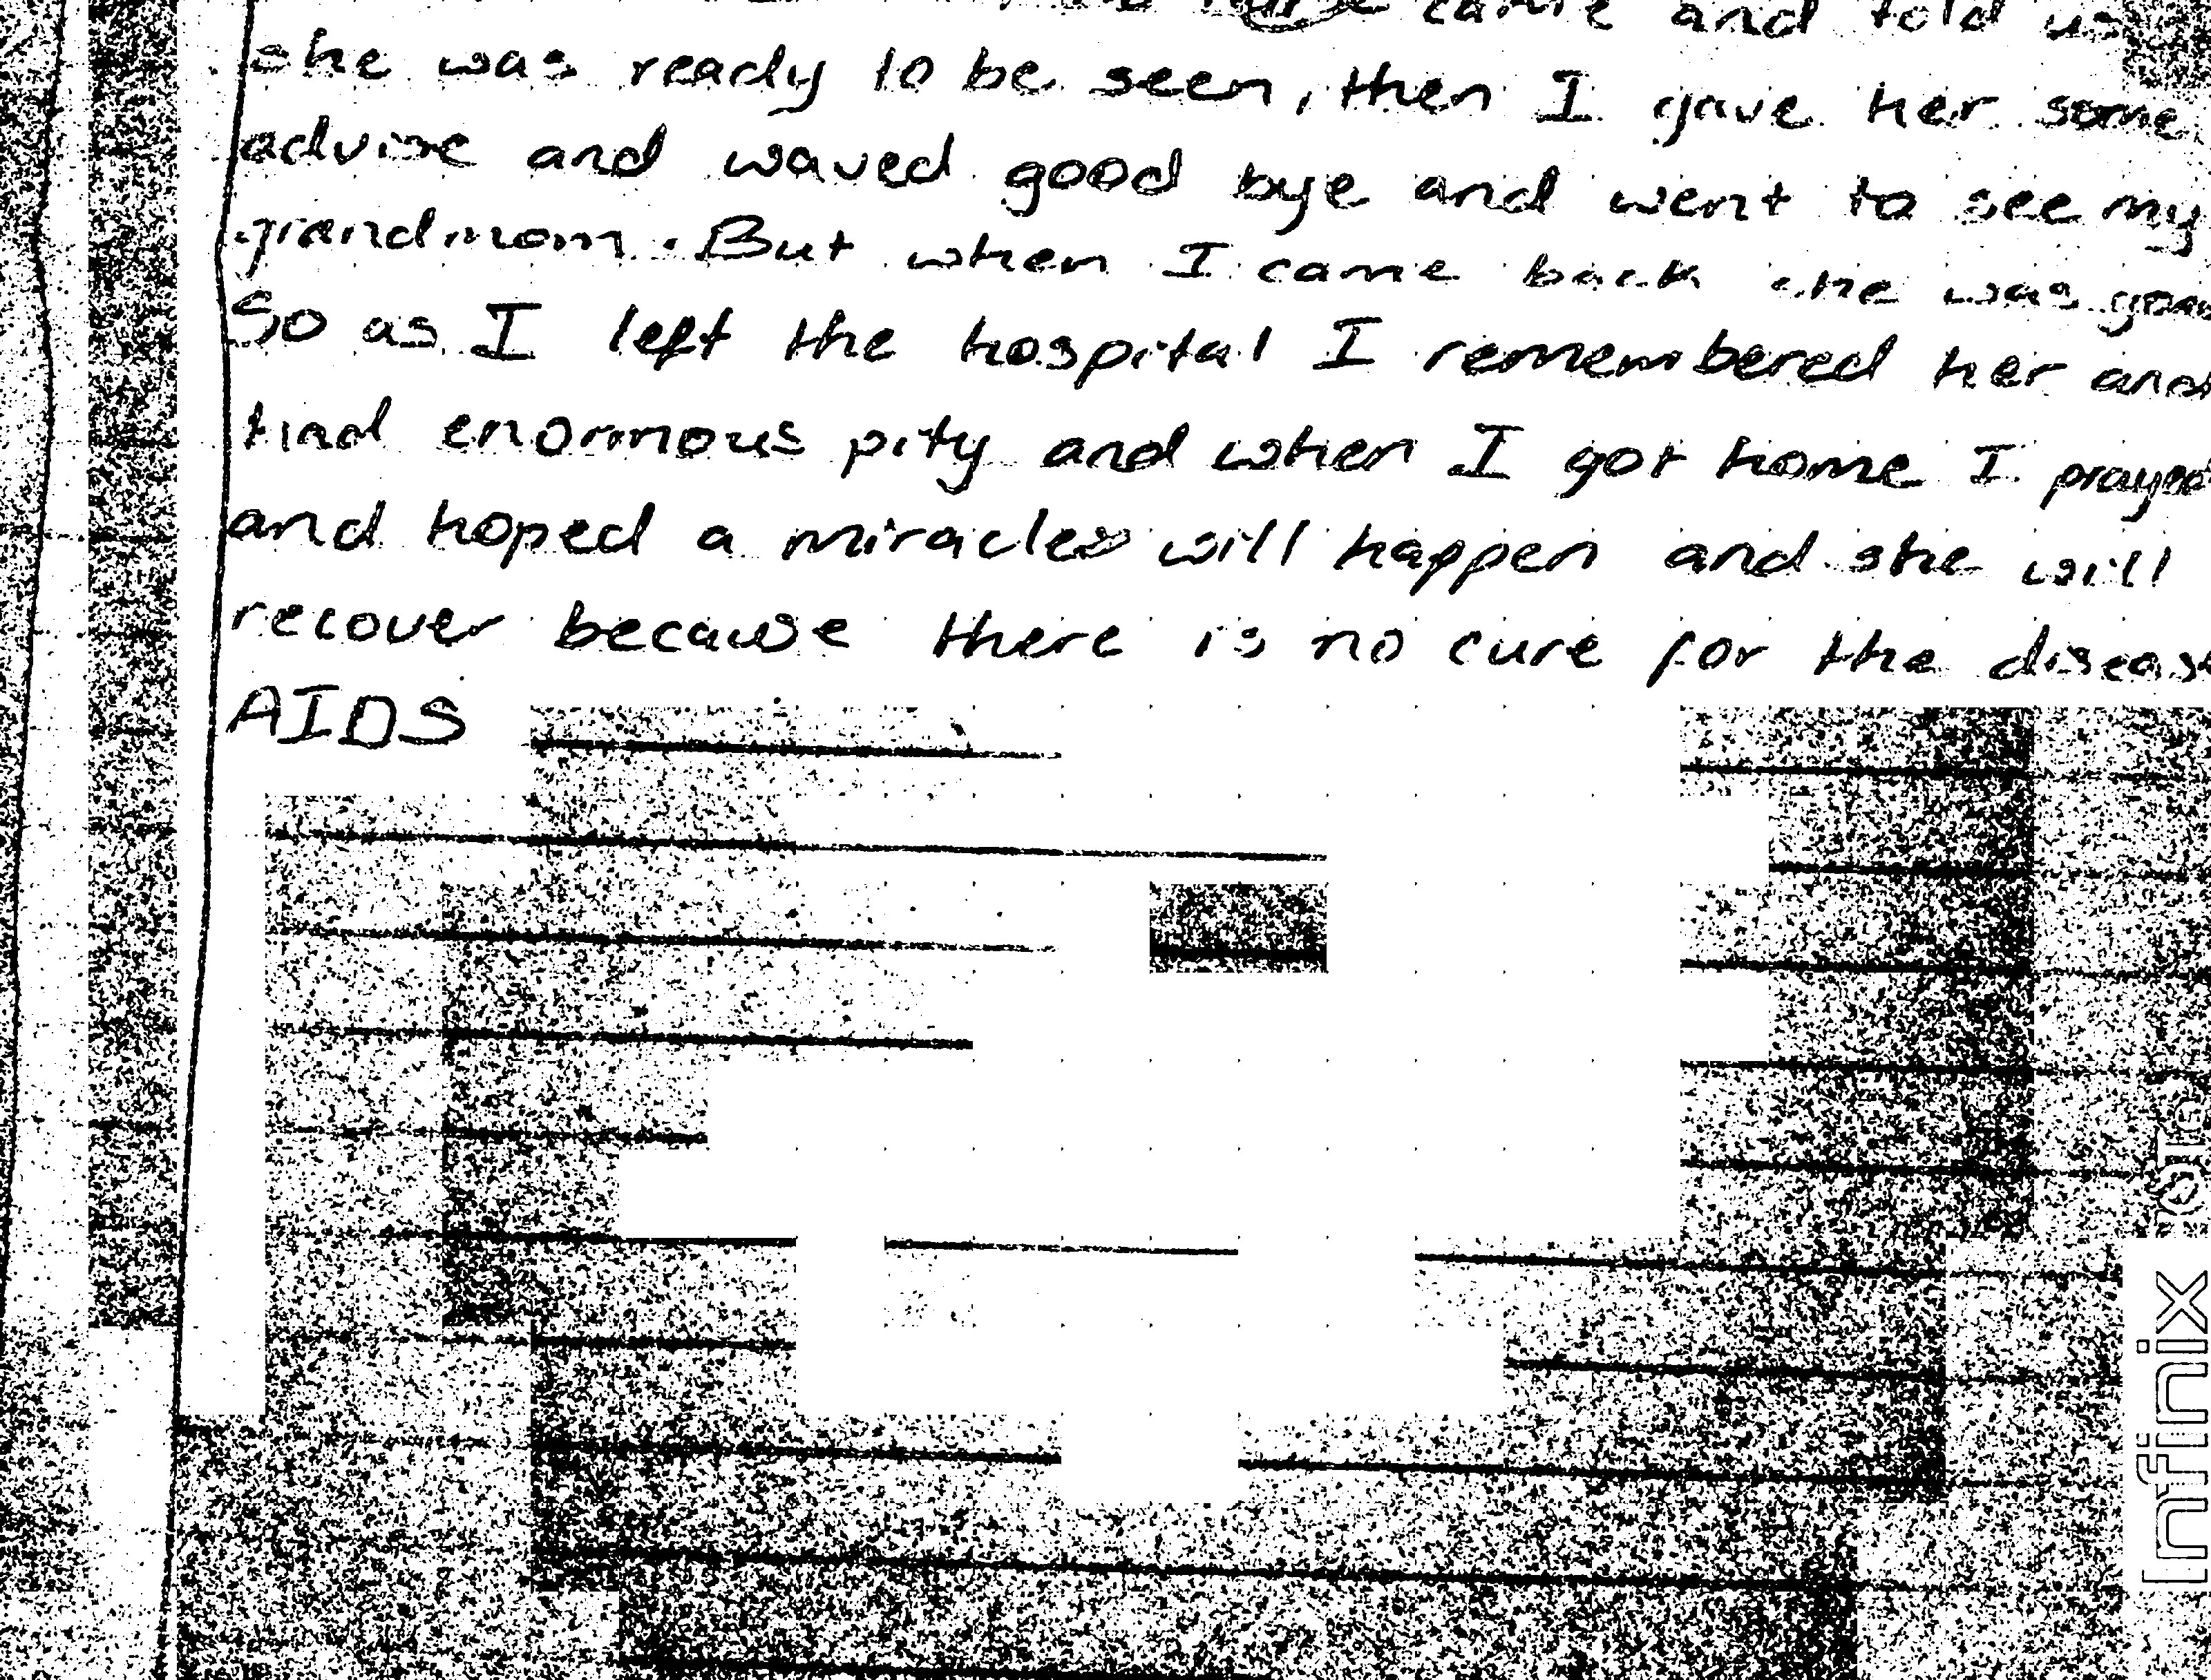 came and told us
she was ready to be seen, then I gave her some
advise and waved good bye and went to see my
grandmom. But when I came back she was
So as I left the hospital I remembered her and
had enormous pity and when I got home I prayed
and hoped a miracle will happen and she will
recover because there is no cure for the disease
AIDS
Infinix